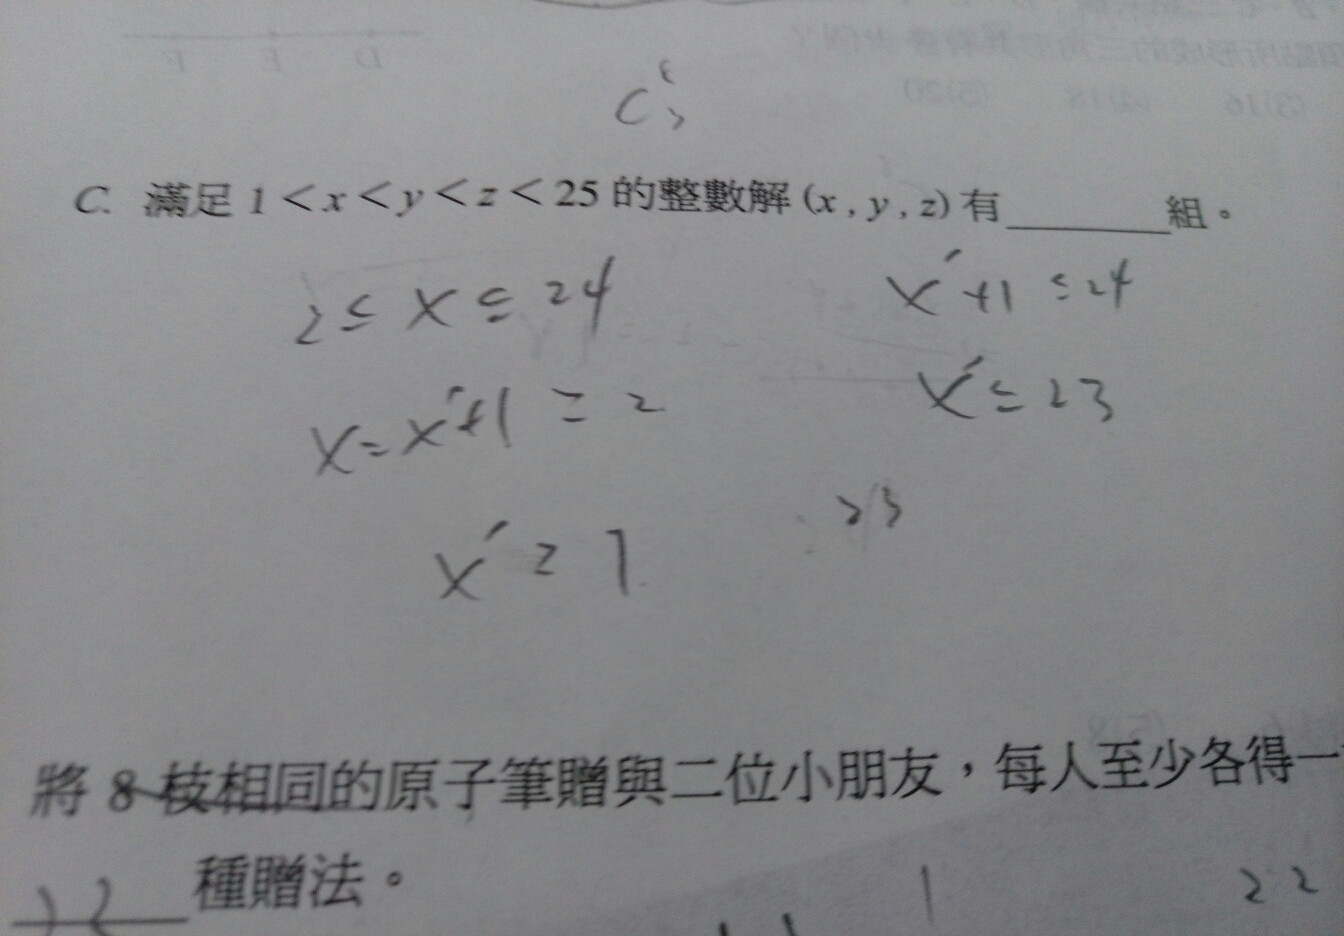 C. 滿足 1＜x＜y＜z＜25 的整數解 (x , y , z) 有______組。
2 ≤ x ≤ 24
x'+1 ≤ 24
x = x'+1 ≥ 2
x' ≤ 23
x' ≥ 1
23
將 8 枝相同的原子筆贈與二位小朋友，每人至少各得一
種贈法。
1
22